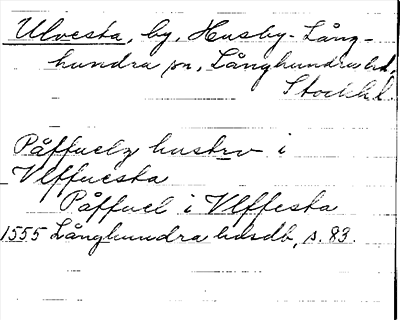 Ulvesta, by, Husby-Lång-
hundra sn, Långhundra hd,
Stockh.l.
Påffuelz hustrv i
Vlffuesta
Påffuel i Vlffesta
1555 Långhundra hdsdb, s. 83.